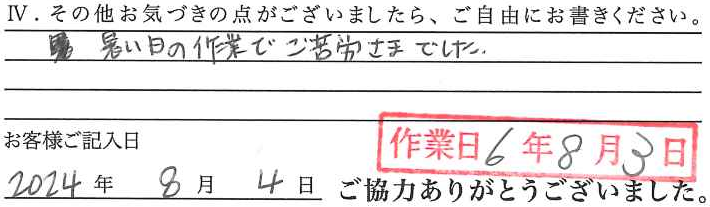 Ⅳ．その他お気づきの点がございましたら、ご自由にお書きください。
暑い日の作業でご苦労さまでした.
お客様ご記入日
作業日6年8月3日
2024年 8月 4日 ご協力ありがとうございました。